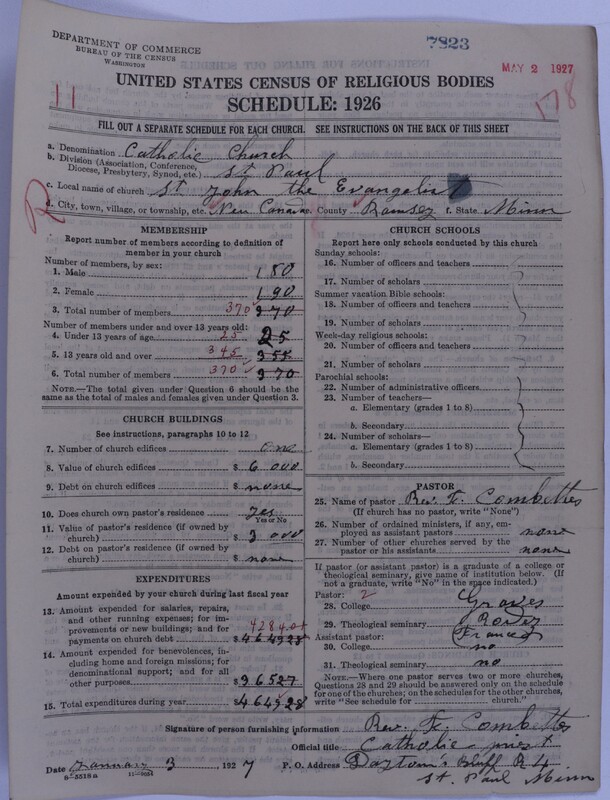 DEPARTMENT OF COMMERCE
BUREAU OF THE CENSUS
WASHINGTON
7823
MAY 2 1927
11
178
UNITED STATES CENSUS OF RELIGIOUS BODIES
SCHEDULE: 1926
FILL OUT A SEPARATE SCHEDULE FOR EACH CHURCH. SEE INSTRUCTIONS ON THE BACK OF THIS SHEET
a. Denomination Catholic Church
b. Division (Association, Conference, Diocese, Presbytery, Synod, etc.) St Paul
c. Local name of church St John the Evangelist
R
d. City, town, village, or township, etc. New Canada County Ramsey f. State Minn
MEMBERSHIP
Report number of members according to definition of
member in your church
Number of members, by sex:
1. Male 180
2. Female 190
3. Total number of members 370 370
Number of members under and over 13 years old:
4. Under 13 years of age 25 25
5. 13 years old and over 345 355
6. Total number of members 370 370
NOTE.—The total given under Question 6 should be
same as the total of males and females given under Question 3.
CHURCH BUILDINGS
See instructions, paragraphs 10 to 12
7. Number of church edifices one
8. Value of church edifices $ 6 000
9. Debt on church edifices $ none
10. Does church own pastor's residence yes
Yes or No
11. Value of pastor's residence (if owned by
church) $ 3 000
12. Debt on pastor's residence (if owned by
church) $ none
EXPENDITURES
Amount expended by your church during last fiscal year
13. Amount expended for salaries, repairs,
and other running expenses; for im-
provements or new buildings; and for
payments on church debt $ 464928
14. Amount expended for benevolences,
including home and foreign missions; for
denominational support; and for all
other purposes $ 36527
15. Total expenditures during year $ 464928
CHURCH SCHOOLS
Report here only schools conducted by this church
Sunday schools:
16. Number of officers and teachers
17. Number of scholars
Summer vacation Bible schools:
18. Number of officers and teachers
19. Number of scholars
Week-day religious schools:
20. Number of officers and teachers
21. Number of scholars
Parochial schools:
22. Number of administrative officers
23. Number of teachers—
a. Elementary (grades 1 to 8)
b. Secondary
24. Number of scholars—
a. Elementary (grades 1 to 8)
b. Secondary
PASTOR
25. Name of pastor Rev. F. Combettes
(If church has no pastor, write "None")
26. Number of ordained ministers, if any, em-
ployed as assistant pastors none
27. Number of other churches served by the
pastor or his assistants none
If pastor (or assistant pastor) is a graduate of a college or
theological seminary, give name of institution below. (If
not a graduate, write "No" in the space indicated.)
Pastor: 2
28. College Graves
29. Theological seminary Rodez
Assistant pastor: France
30. College no
31. Theological seminary no
NOTE.—Where one pastor serves two or more churches,
Questions 28 and 29 should be answered only on the schedule
for one of the churches; on the schedules for the other churches,
write "See schedule for church."
Signature of person furnishing information Rev. F. Combettes
Official title Catholic priest
Date January 3, 1927 P. O. Address Dayton's Bluff R 4
St. Paul Minn